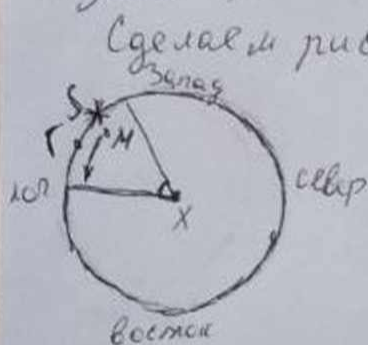 Сделаем рис
Запад
S
Г M
юг
север
X
восток